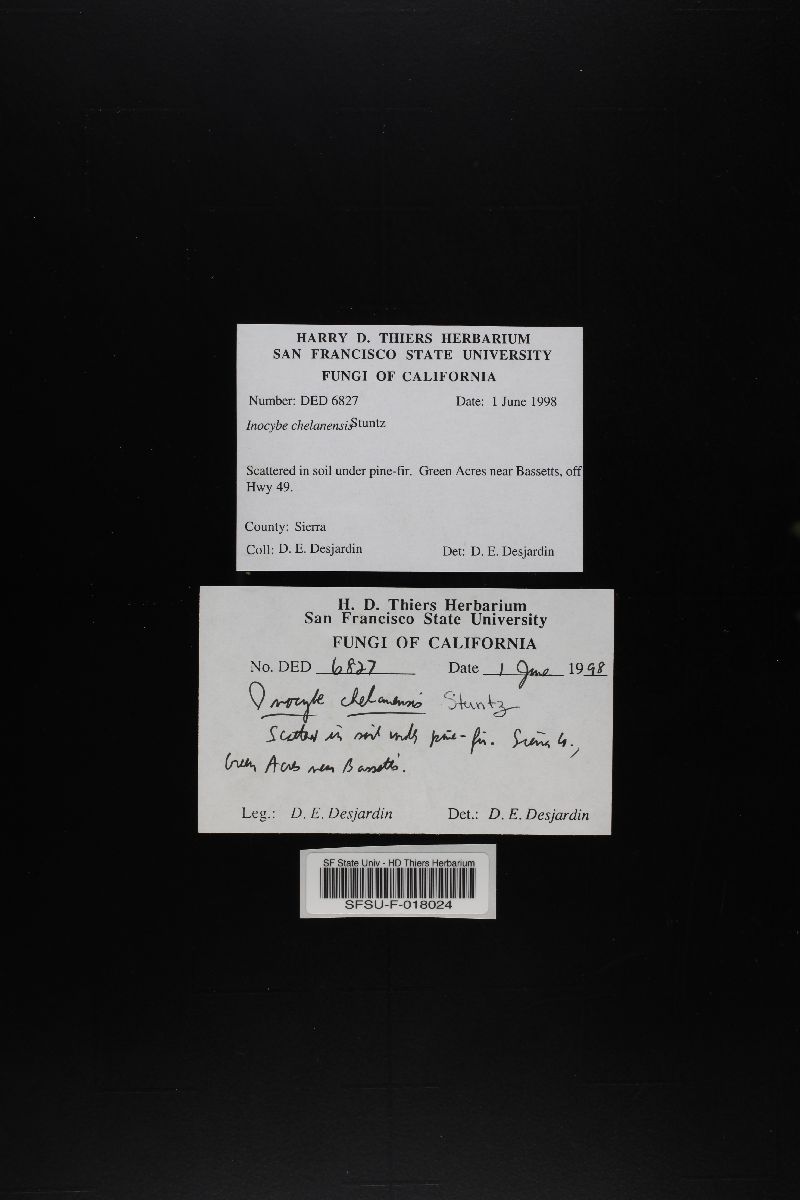 HARRY D. THIERS HERBARIUM
SAN FRANCISCO STATE UNIVERSITY
FUNGI OF CALIFORNIA
Number: DED 6827 Date: 1 June 1998
Inocybe chelanensis Stuntz
Scattered in soil under pine-fir. Green Acres near Bassetts, off
Hwy 49.
County: Sierra
Coll: D. E. Desjardin Det: D. E. Desjardin
H. D. Thiers Herbarium
San Francisco State University
FUNGI OF CALIFORNIA
No. DED 6827 Date 1 June 1998
Inocybe chelanensis Stuntz
Scattered in soil under pine-fir. Sierra Co.,
Green Acres near Bassetts.
Leg.: D. E. Desjardin Det.: D. E. Desjardin
SF State Univ - HD Thiers Herbarium
SFSU-F-018024